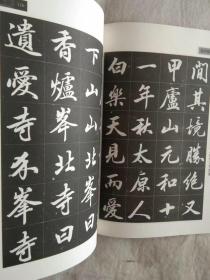 下山山北峯曰
香爐峯北寺曰
遺愛寺介峯寺
間其境勝絕又
甲廬山元和十
一年秋太原人
白樂天見而愛